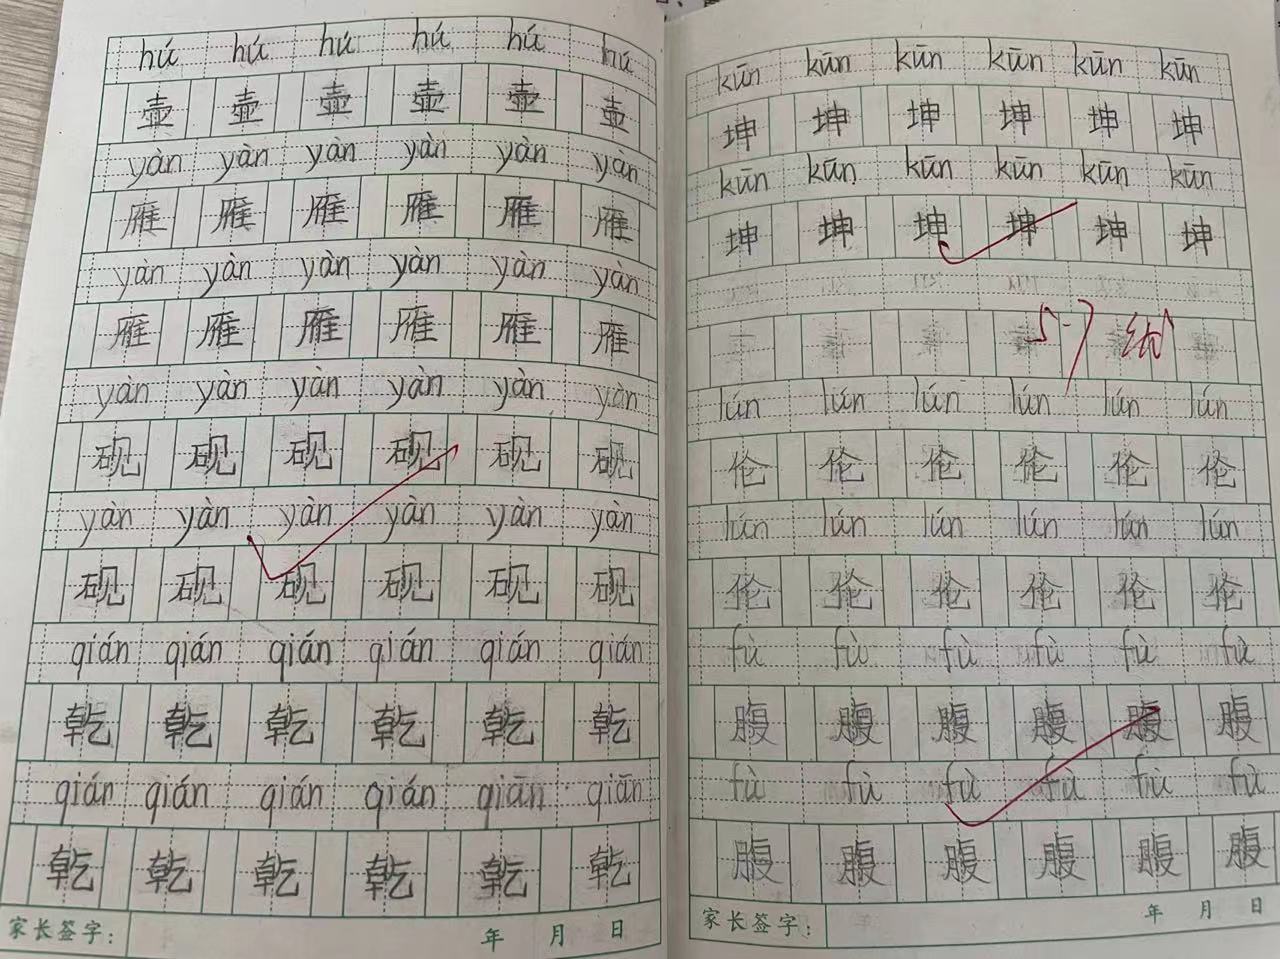 hú hú hú hú hú hú
壶 壶 壶 壶 壶 壶
yàn yàn yàn yàn yàn yàn
雁 雁 雁 雁 雁 雁
yàn yàn yàn yàn yàn yàn
雁 雁 雁 雁 雁 雁
yàn yàn yàn yàn yàn yàn
砚 砚 砚 砚 砚 砚
yàn yàn yàn yàn yàn yàn
砚 砚 砚 砚 砚 砚
qián qián qián qián qián qián
乾 乾 乾 乾 乾 乾
qián qián qián qián qiān qiān
乾 乾 乾 乾 乾 乾
家长签字： 年 月 日
kūn kūn kūn kūn kūn kūn
坤 坤 坤 坤 坤 坤
kūn kūn kūn kūn kūn kūn
坤 坤 坤 坤 坤 坤
5-7
lún lún lún lún lún lún
伦 伦 伦 伦 伦 伦
lún lún lún lún lún lún
伦 伦 伦 伦 伦 伦
fù fù fù fù fù fù
腹 腹 腹 腹 腹 腹
fù fù fù fù fù fù
腹 腹 腹 腹 腹 腹
家长签字： 年 月 日